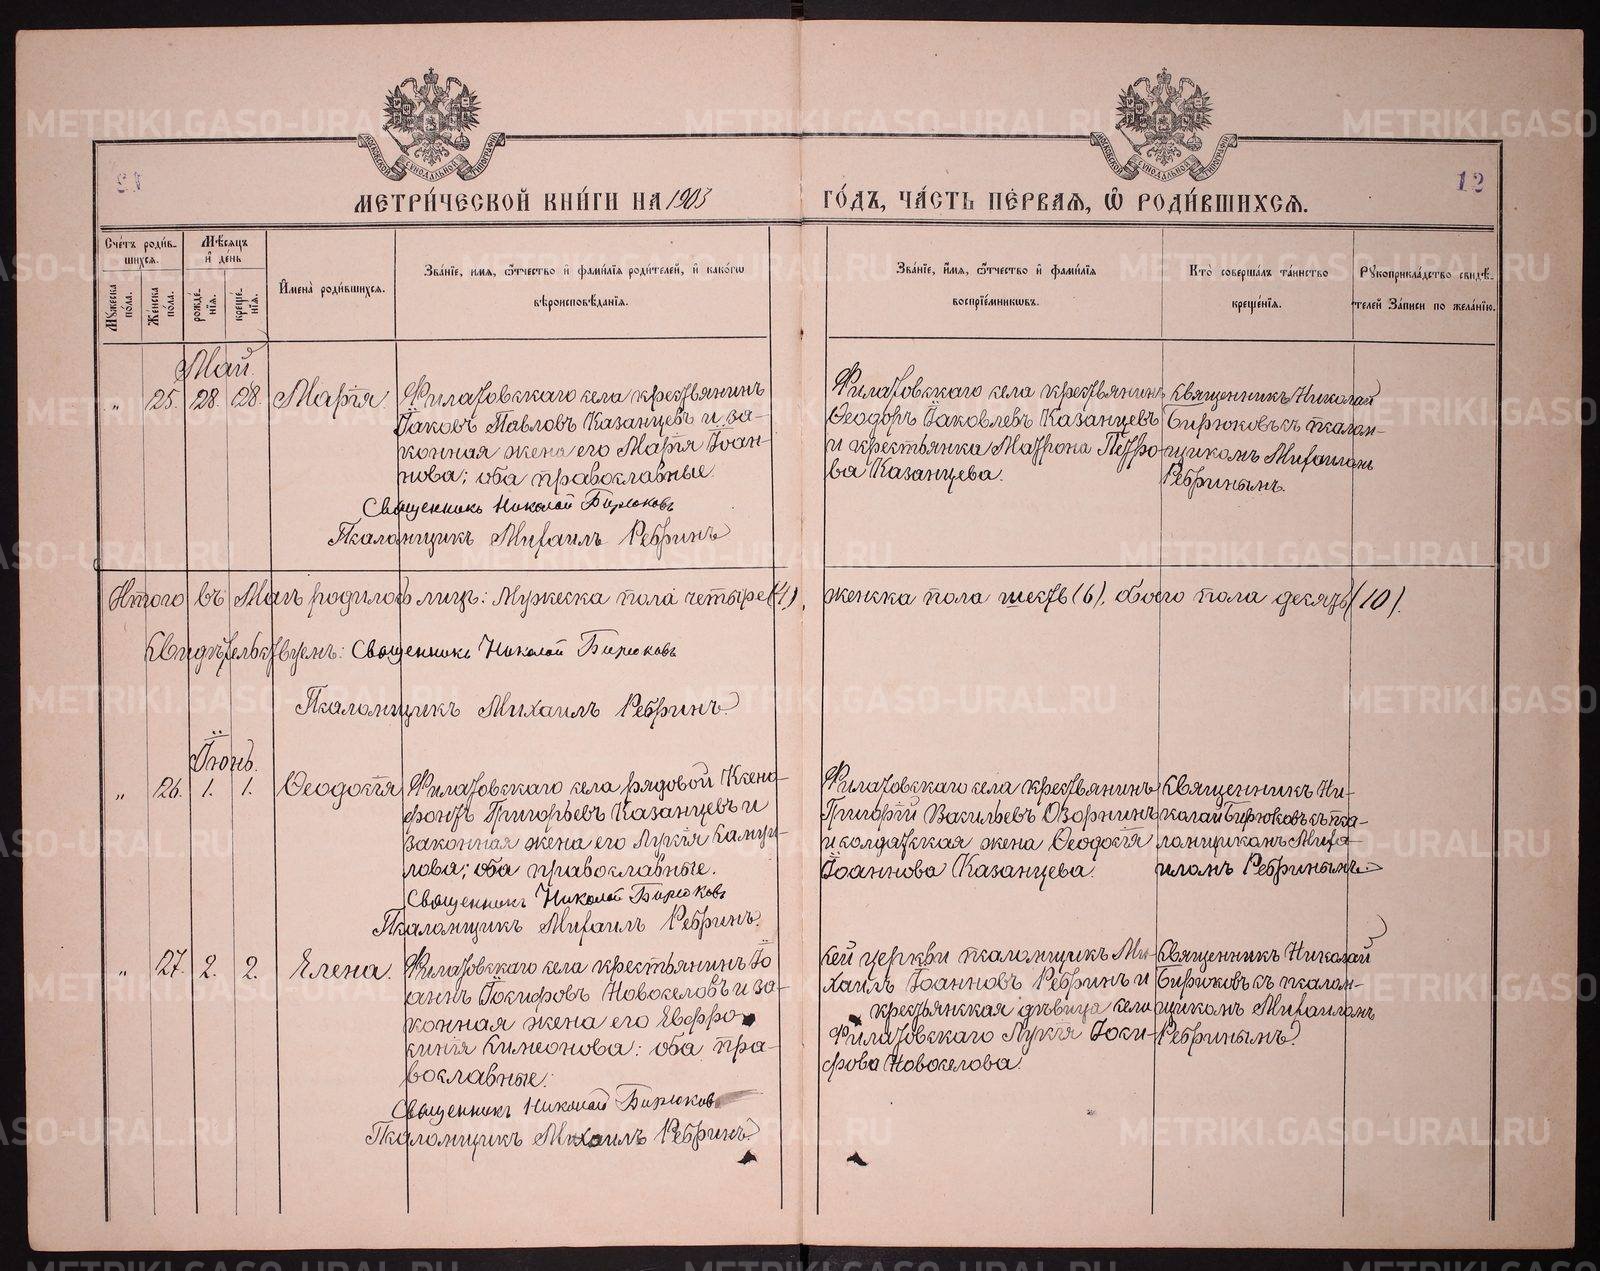 МОСКОВСКОЙ СѴНОДАЛЬНОЙ ТИПОГРАФІИ
МОСКОВСКОЙ СѴНОДАЛЬНОЙ ТИПОГРАФІИ
12
МЕТРИ́ЧЕСКОЙ КНИ́ГИ НА 1903 ГО́ДЪ, ЧА́СТЬ ПЕ́РВАѦ, Ѽ РОДИ́ВШИХСѦ.
Сче́тъ роди́в-
шихсѧ.
Мꙋ́жеска по́ла.
Же́нска по́ла.
Мѣ́сѧцъ и҆ де́нь
рожде́-нїѧ.
креще́-нїѧ.
И҆мена̀ роди́вшихсѧ.
Зва́нїе, и҆мѧ, ѻ҆́тчество и҆ фами́лїѧ роди́телей, и҆ како́гѡ
вѣроисповѣ́данїѧ.
Зва́нїе, и҆́мѧ, ѻ҆́тчество и҆ фами́лїѧ
воспрїе́мникѡвъ.
Кто̀ соверша́лъ та́инство
креще́нїѧ.
Рꙋкоприкла́дство свидѣ́-
телей За́писи по жела́нїю.
Май.
„ 25. 28. 28. Марія.
Филатовскаго села крестьянинъ
Іаковъ Павловъ Казанцевъ и за-
конная жена его Марія Іоан-
нова; оба православные.
Священникъ Николай Бирюковъ
Псаломщикъ Михаилъ Ребринъ
Филатовскаго села крестьянинъ
Ѳеодоръ Іаковлевъ Казанцевъ
и крестьянка Матрона Петро-
ва Казанцева.
Священникъ Николай
Бирюковъ съ псалом-
щикомъ Михаиломъ
Ребринымъ.
Итого въ Маѣ родилось лицъ: Мужеска пола четыре (4), женска пола шесть (6), обоего пола десять (10).
Свидѣтельствуемъ: Священникъ Николай Бирюковъ
Псаломщикъ Михаилъ Ребринъ.
Іюнь.
„ 26. 1. 1. Ѳеодосія
Филатовскаго села рядовой Ксено-
фонтъ Григорьевъ Казанцевъ и
законная жена его Лукія Самуи-
лова; оба православные.
Священникъ Николай Бирюковъ
Псаломщикъ Михаилъ Ребринъ.
Филатовскаго села крестьянинъ
Григорій Васильевъ Озорнинъ
и солдатская жена Ѳеодосія
Іоаннова Казанцева.
Священникъ Ни-
колай Бирюковъ съ пса-
ломщикомъ Миха-
иломъ Ребринымъ.
„ 27. 2. 2. Елена.
Филатовскаго села крестьянинъ Іо-
аннъ Іосифовъ Новоселовъ и за-
конная жена его Евфро-
синія Симеонова: оба пра-
вославные.
Священникъ Николай Бирюковъ
Псаломщикъ Михаилъ Ребринъ
Сей церкви псаломщикъ Ми-
хаилъ Іоанновъ Ребринъ и
крестьянская дѣвица села
Филатовскаго Лукія Іоси-
фова Новоселова.
Священникъ Николай
Бирюковъ съ псалом-
щикомъ Михаиломъ
Ребринымъ.
METRIKI.GASO-URAL.RU